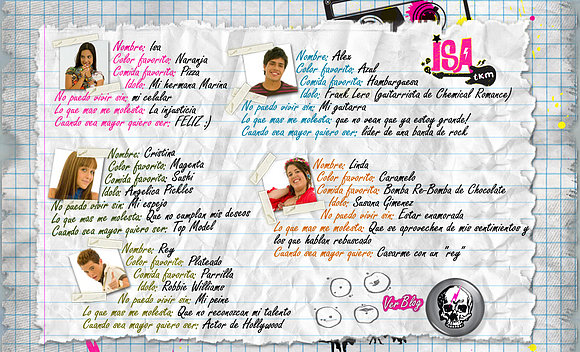 Nombre: Isa
Color favorito: Naranja
Comida favorita: Pizza
Idolo: Mi hermana Marina
No puedo vivir sin: mi celular
Lo que mas me molesta: La injusticia
Cuando sea mayor quiero ser: FELIZ :)
Nombre: Alex
Color favorito: Azul
Comida favorita: Hamburguesa
Idolo: Frank Lero (guitarrista de Chemical Romance)
No puedo vivir sin: Mi guitarra
Lo que mas me molesta: que no vean que ya estoy grande!
Cuando sea mayor quiero ser: líder de una banda de rock
ISA
tkm
Nombre: Cristina
Color favorito: Magenta
Comida favorita: Sushi
Idolo: Angelica Pickles
No puedo vivir sin: Mi espejo
Lo que mas me molesta: Que no cumplan mis deseos
Cuando sea mayor quiero ser: Top Model
Nombre: Linda
Color favorito: Caramelo
Comida favorita: Bomba Re-Bomba de Chocolate
Idolo: Susana Gimenez
No puedo vivir sin: Estar enamorada
Lo que mas me molesta: Que se aprovechen de mis sentimientos y
los que hablan rebuscado
Cuando sea mayor quiero ser: Casarme con un "rey"
Nombre: Rey
Color favorito: Plateado
Comida favorita: Parrilla
Idolo: Robbie Williams
No puedo vivir sin: Mi peine
Lo que mas me molesta: Que no reconozcan mi talento
Cuando sea mayor quiero ser: Actor de Hollywood
Ver Blog